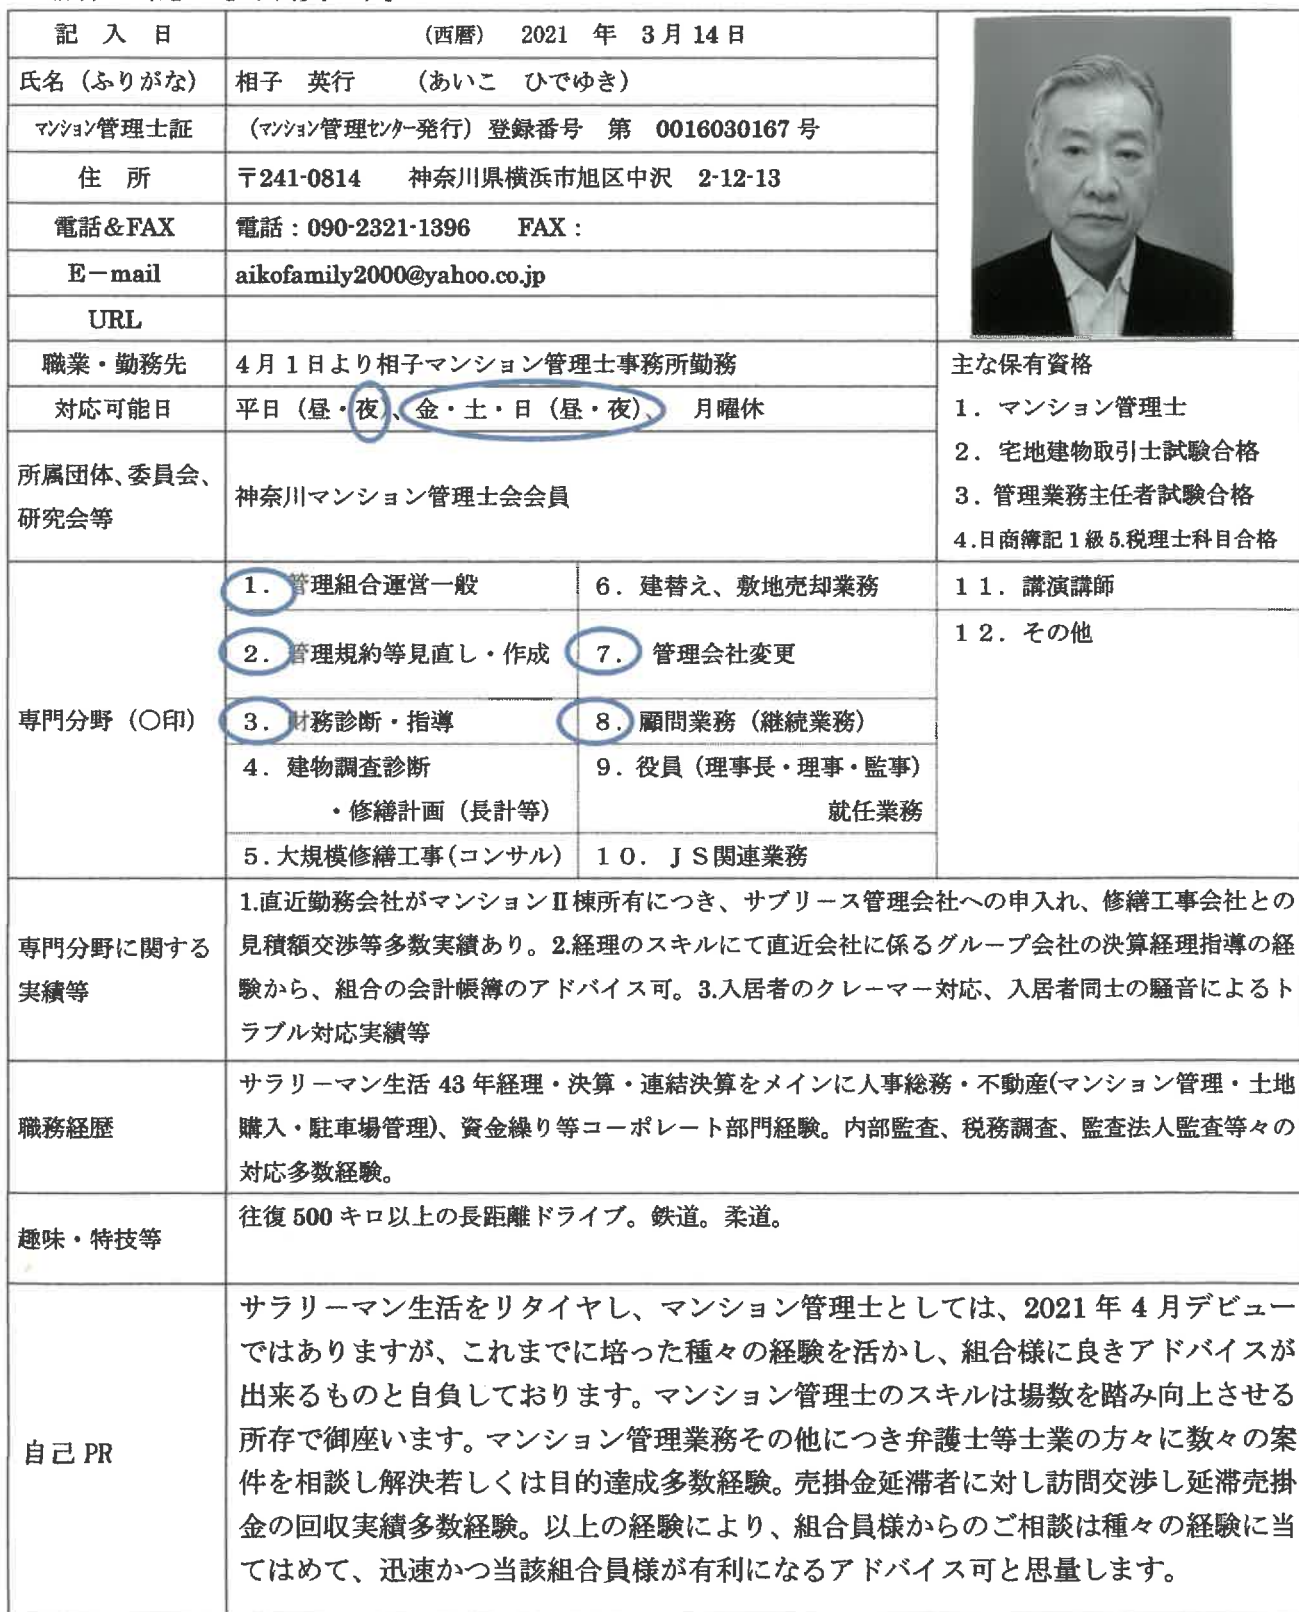 記 入 日 (西暦) 2021 年 3月14日
氏名（ふりがな） 相子 英行 （あいこ ひでゆき）
マンション管理士証 （マンション管理センター発行）登録番号 第 0016030167号
住 所 〒241-0814 神奈川県横浜市旭区中沢 2-12-13
電話＆FAX 電話：090-2321-1396 FAX：
E－mail aikofamily2000@yahoo.co.jp
URL
職業・勤務先 4月1日より相子マンション管理士事務所勤務
対応可能日 平日（昼・夜）、金・土・日（昼・夜）、 月曜休
所属団体、委員会、
研究会等
神奈川マンション管理士会会員
主な保有資格
1．マンション管理士
2．宅地建物取引士試験合格
3．管理業務主任者試験合格
4.日商簿記1級5.税理士科目合格
専門分野（○印）
1．管理組合運営一般
2．管理規約等見直し・作成
3．財務診断・指導
4．建物調査診断
・修繕計画（長計等）
5．大規模修繕工事（コンサル）
6．建替え、敷地売却業務
7．管理会社変更
8．顧問業務（継続業務）
9．役員（理事長・理事・監事）
就任業務
10．JS関連業務
11．講演講師
12．その他
専門分野に関する
実績等
1.直近勤務会社がマンションⅡ棟所有につき、サブリース管理会社への申入れ、修繕工事会社との
見積額交渉等多数実績あり。2.経理のスキルにて直近会社に係るグループ会社の決算経理指導の経
験から、組合の会計帳簿のアドバイス可。3.入居者のクレーマー対応、入居者同士の騒音によるト
ラブル対応実績等
職務経歴
サラリーマン生活43年経理・決算・連結決算をメインに人事総務・不動産(マンション管理・土地
購入・駐車場管理)、資金繰り等コーポレート部門経験。内部監査、税務調査、監査法人監査等々の
対応多数経験。
趣味・特技等
往復500キロ以上の長距離ドライブ。鉄道。柔道。
自己PR
サラリーマン生活をリタイヤし、マンション管理士としては、2021年4月デビュー
ではありますが、これまでに培った種々の経験を活かし、組合様に良きアドバイスが
出来るものと自負しております。マンション管理士のスキルは場数を踏み向上させる
所存で御座います。マンション管理業務その他につき弁護士等士業の方々に数々の案
件を相談し解決若しくは目的達成多数経験。売掛金延滞者に対し訪問交渉し延滞売掛
金の回収実績多数経験。以上の経験により、組合員様からのご相談は種々の経験に当
てはめて、迅速かつ当該組合員様が有利になるアドバイス可と思量します。